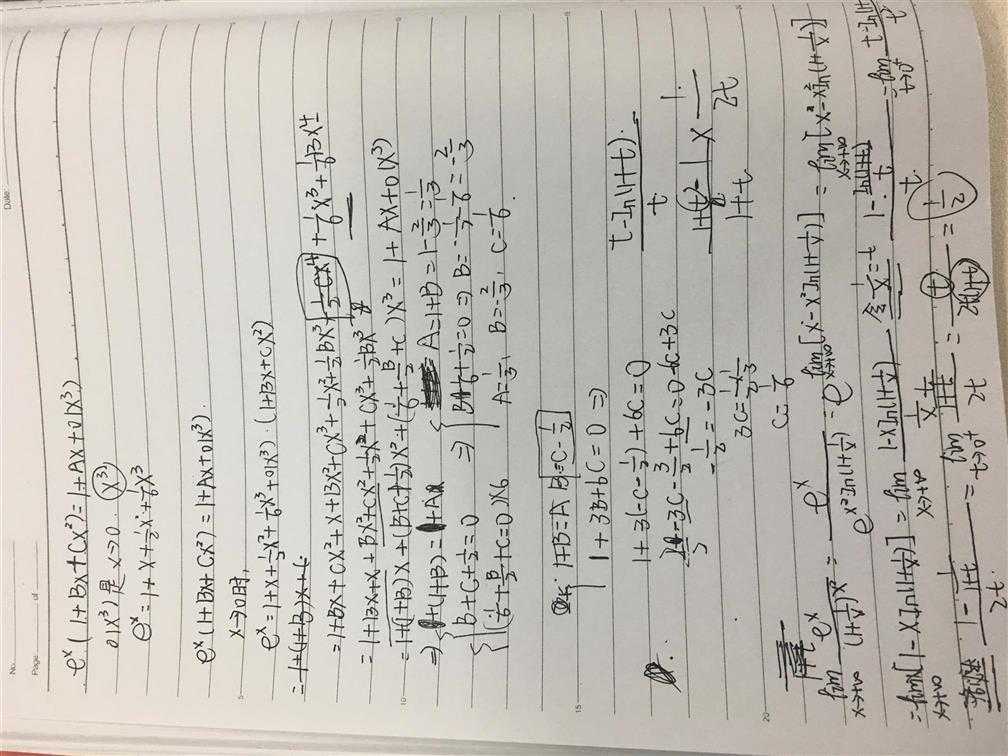 No.
Date
Page of
e^x(1+Bx+Cx²)=1+Ax+o(x³)
o(x³)是x→0 x³
e^x=1+x+½x²+⅙x³
e^x(1+Bx+Cx²)=1+Ax+o(x³).
x→0时,
5
e^x=1+x+½x²+⅙x³+o(x³)·(1+Bx+Cx²)
=1+(1+B)x+
=1+Bx+Cx²+x+Bx²+Cx³+½x²+½Bx³+½Cx⁴+⅙x³+⅙Bx⁴
=1+Bx+x+Bx²+Cx²+½x²+Cx³+½Bx³
10
=1+(1+B)x+(B+C+½)x²+(⅙+B/2+C)x³=1+Ax+o(x³)
⇒ A=1+B=1-⅔=⅓
B+C+½=0 ⇒ =0⇒B= =-⅔
(⅙+B/2+C=0)×6 A=⅓, B=-⅔, C=⅙.
15
1+B=A B=-C-½
1+3B+6C=0⇒
1+3(-C-½)+6C=0
-3C-3/2+6C=0
-½=-3C
3C=½
C=⅙
t-ln(1+t)
t
1+t-1 × 1
1+t 2t
20
lim x→+∞ e^x/(1+1/x)^x² = e^x/e^(x²ln(1+1/x)) = e^lim x→+∞[x-x²ln(1+1/x)] = lim x→+∞[x-x²ln(1+1/x)]
=lim x→+∞ x[1-xln(1+1/x)]=lim x→+∞ (1-xln(1+1/x))/(1/x) 令1/x=t (1-ln(1+t)/t)/t = lim t→0⁺ (t-ln(1+t))/t²
(1-1/(1+t))/2t = lim t→0⁺ (t/(1+t))/2t = t/2t(1+t) = ½